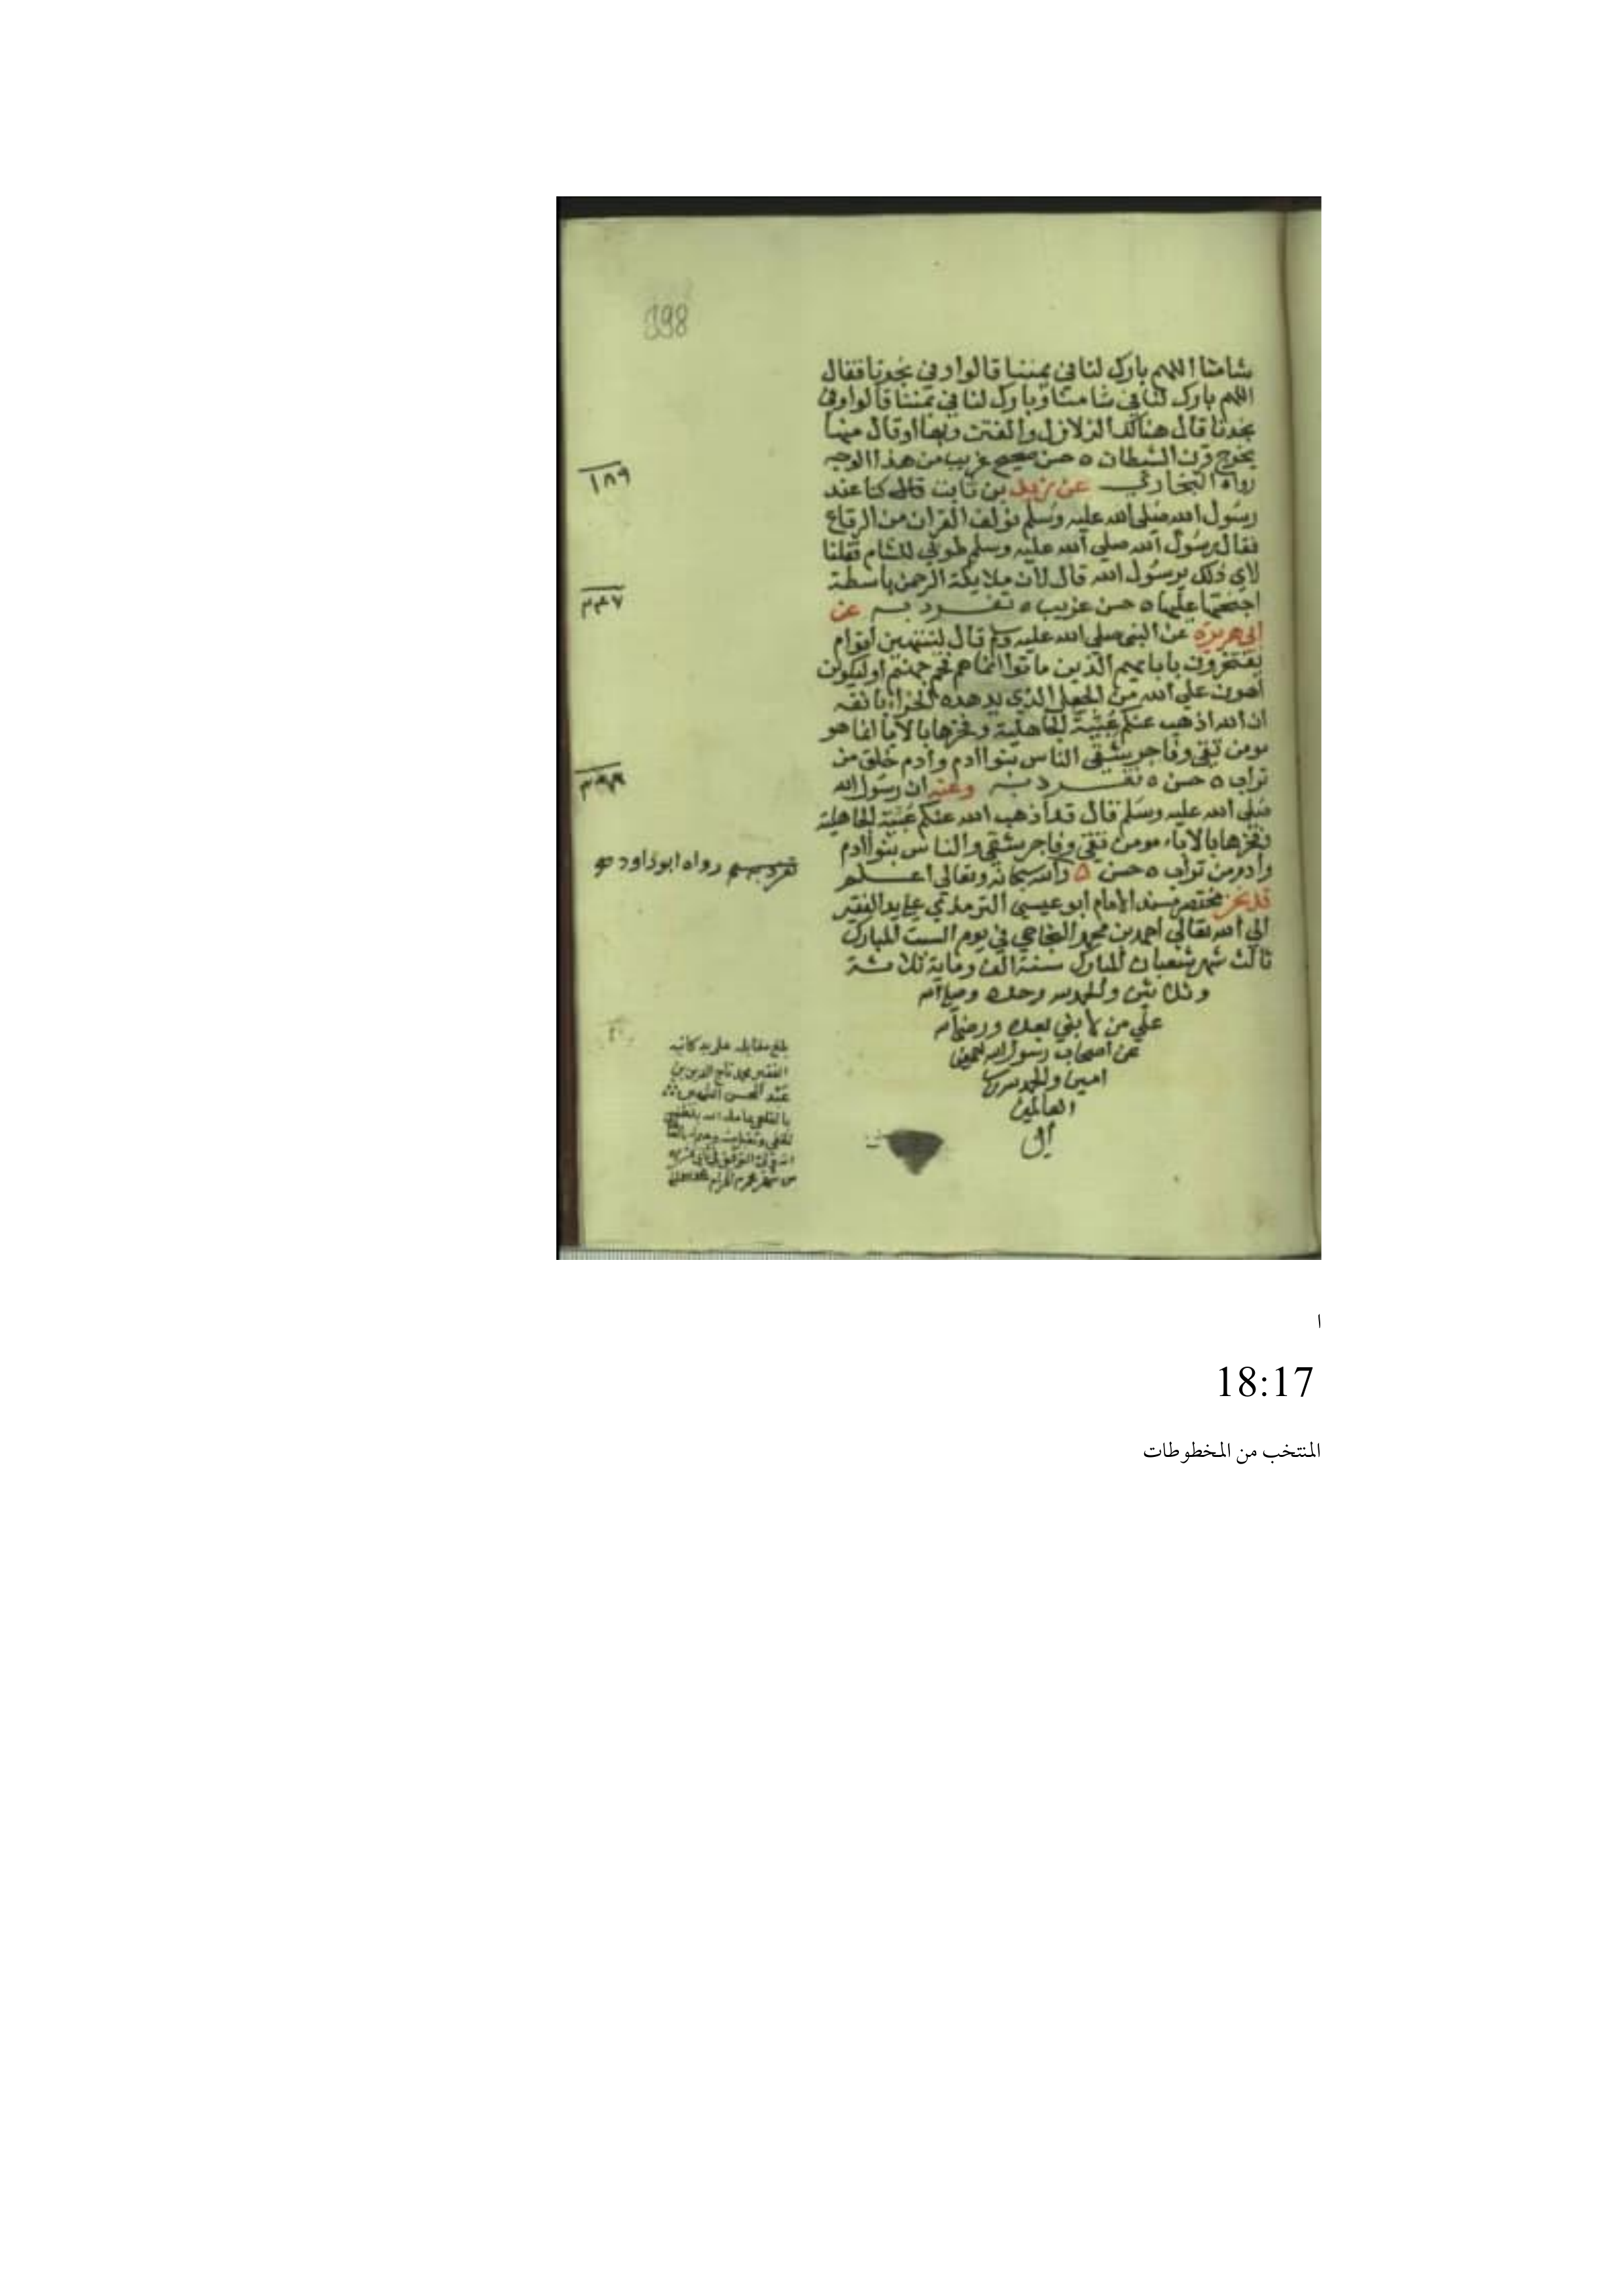 398
شامنا اللهم بارك لنا في يمننا قالوا وفي نجدنا فقال
اللهم بارك لنا في شامنا وبارك لنا في يمننا قالوا وفي
نجدنا قال هناك الزلازل والفتن وبها او قال منها
يخرج قرن الشيطان ه حسن صحيح غريب من هذا الوجه
رواه البخاري عن زيد بن ثابت قال كنا عند
١٨٩
رسول الله صلى الله عليه وسلم نولف القران من الرقاع
فقال رسول الله صلي الله عليه وسلم طوبي للشام فقلنا
لاي ذلك يرسول الله قال لان ملايكة الرحمن باسطة
اجنحتها عليها ه حسن غريب ه تفرد به عن
ابي هريرة عن النبي صلي الله عليه وسلم قال لينتهين اقوام
يفتخرون بابايهم الذين ماتوا انما هم فحم جهنم او ليكونن
اهون علي الله من الجعل الذي يدهده الخراء بانفه
ان الله اذهب عنكم عبية الجاهلية وفخرها بالابا انما هو
مومن تقي وفاجر شقي الناس بنوا ادم وادم خلق من
تراب ه حسن ه تفرد به وعنه ان رسول الله
صلي الله عليه وسلم قال قد اذهب الله عنكم عبية الجاهلية
وفخرها بالاباء مومن تقي وفاجر شقي والناس بنوا ادم
وادم من تراب ه حسن ه والله سبحانه وتعالي اعلم
تفرد به رواه ابو داود
قد نجز مختصر مسند الامام ابو عيسي الترمذي علي يد الفقير
الي الله تعالي احمد بن محمد الخفاجي في يوم السبت المبارك
ثالث شهر شعبان المبارك سنة الف وماية ثلاثة
وثلاثين والحمد لله وحده وصلي الله
علي من لا نبي بعده ورضي الله
عن اصحاب رسول الله اجمعين
امين والحمد لله رب
العالمين
بلغ مقابله علي يد كاتبه
الفقير محمد تاج الدين بن
عبد المحسن
ا
18:17
المنتخب من المخطوطات